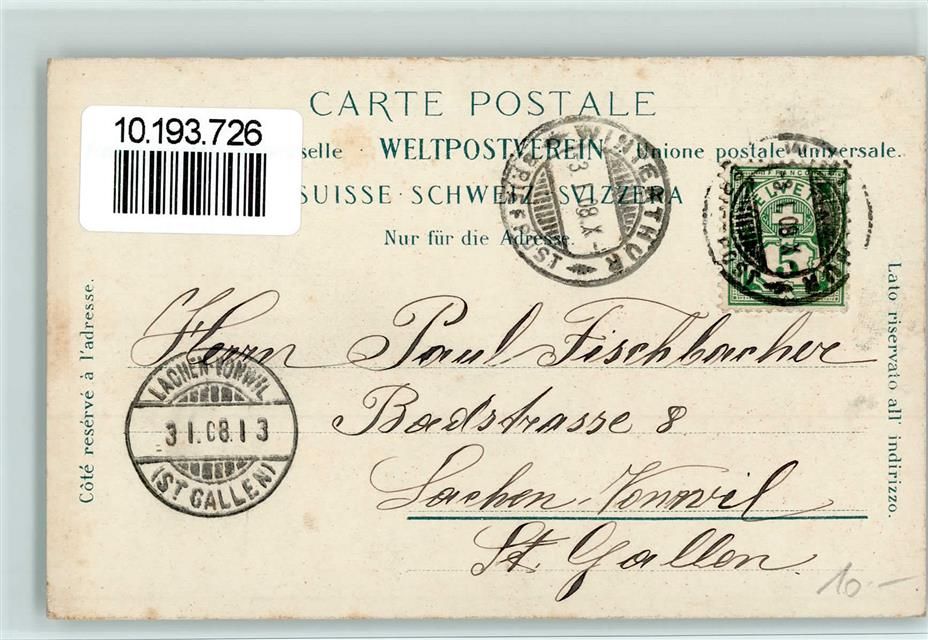 CARTE POSTALE
10.193.726
selle · WELTPOSTVEREIN · Unione postale universale.
SUISSE · SCHWEIZ · SVIZZERA
Nur für die Adresse.
WINTERTHUR
BRIEFPOST
FRANCO
5
Côté resérvé à l'adresse.
Lato riservato all' indirizzo.
Herrn Paul Fischbacher
LACHEN-VONWIL
31.08.13
(ST GALLEN)
Badstrasse 8
Lachen-Vonwil
St. Gallen
10.-